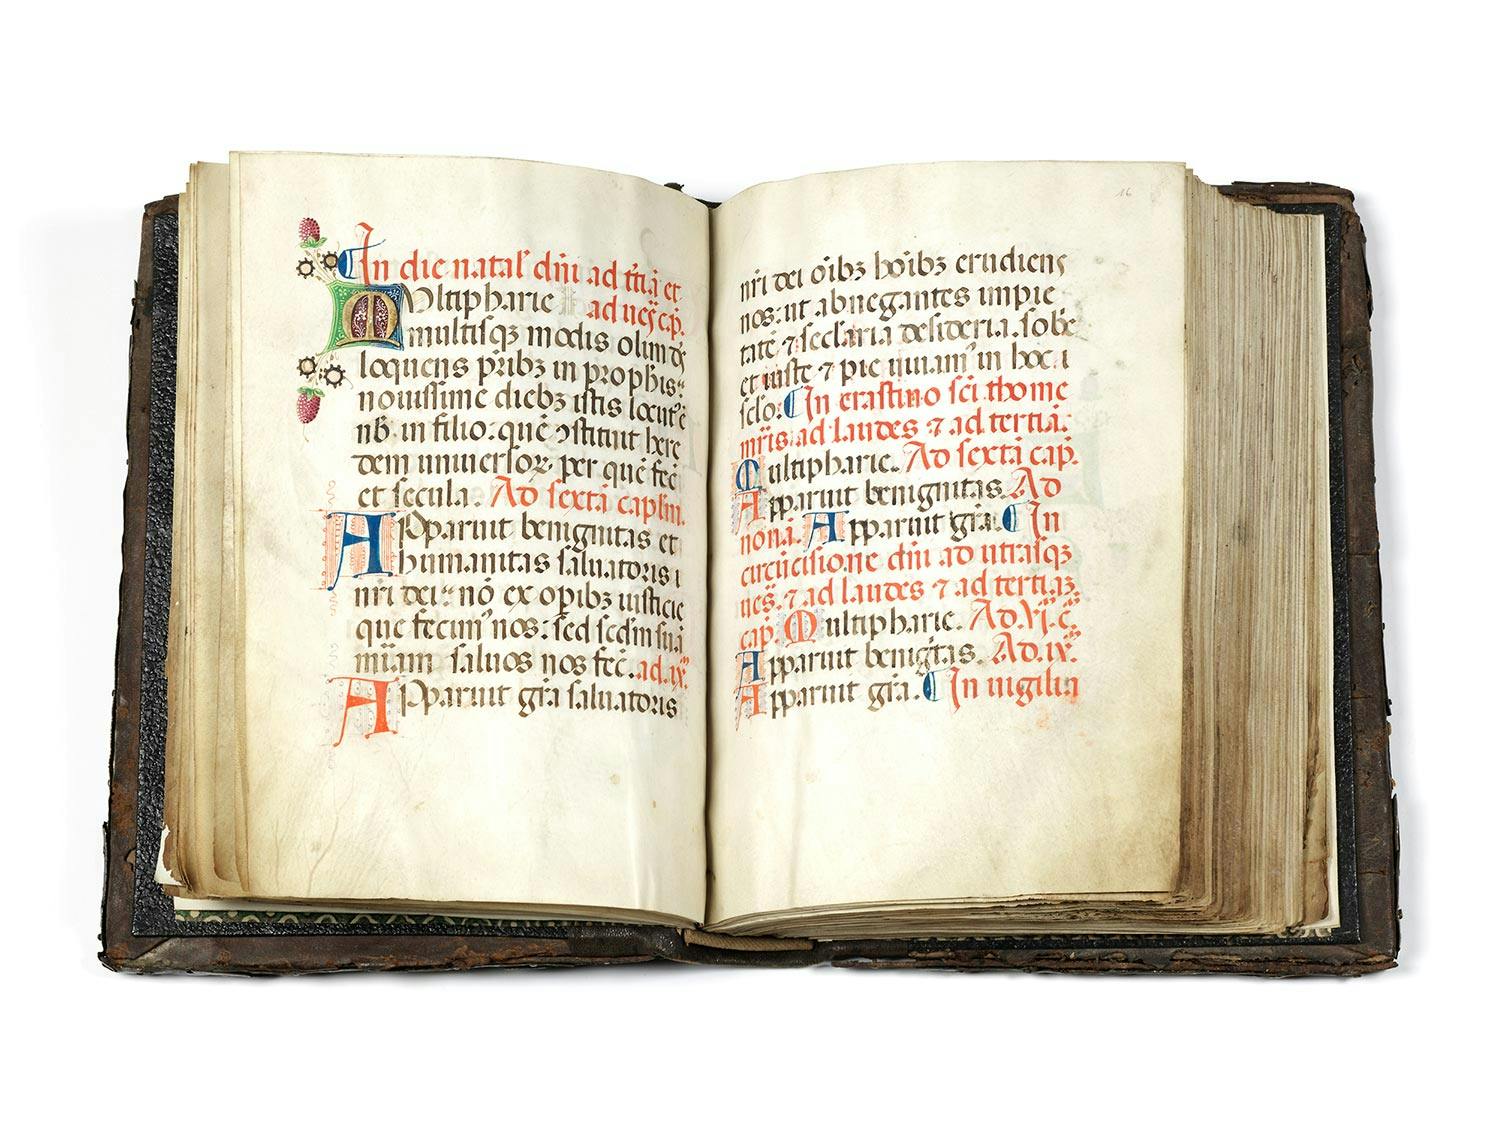 In die natal' dñi ad t'tiã et
Multipharie ad uesᷓ cap̃.
multisqꝫ modis olim dsˀ
loquens pr̃ibꝫ in prophis:
nouissime diebꝫ istis locut' ẽ
nb̃. in filio: quẽ ɔstituit here
dem uniuersoꝝ. per quẽ fec̃
et secula. Ad sextã cap̃lm.
Apparuit benignitas et
humanitas saluatoris
nr̃i dei: nõ ex op̃ibꝫ iusticie
que fecim' nos: sed scd̃m suã
mĩam saluos nos fec̃. ad .ix.
Apparuit gr̃a saluatoris
16
nr̃i dei oĩbꝫ hoĩbꝫ erudiens
nos: ut abnegantes impie
tatẽ ⁊ sec̃laria desideria. sob̃e
et iuste ⁊ pie uiuam' in hoc
sc̃lo: In crastino sc̃i thome
mr̃is ad laudes ⁊ ad tertiã.
Multipharie. Ad sextã cap̃.
Apparuit benignitas. Ad
nonã. Apparuit gr̃a. In
circũcisione dñi ad utrasqꝫ
ues̃. ⁊ ad laudes ⁊ ad tertiaꝫ
cap̃. Multipharie. Ad .vi. c̃.
Apparuit benig̃tas. Ad .ix.
Apparuit gr̃a. In uigilia